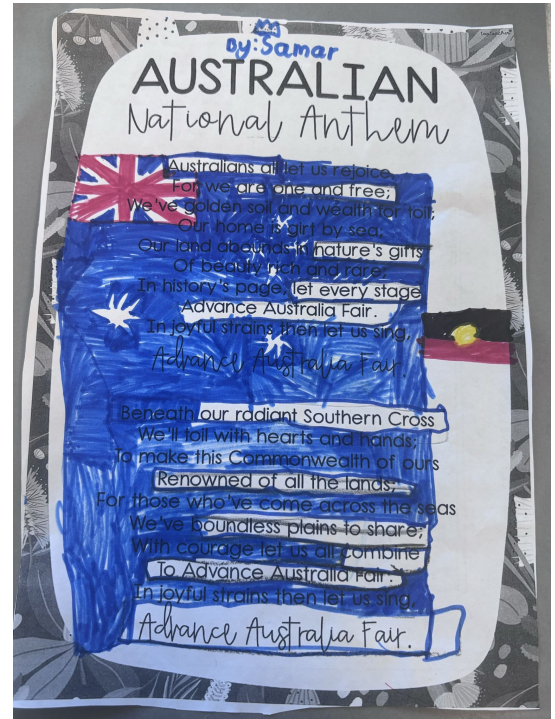 By: Samar
AUSTRALIAN
National Anthem
Australians all let us rejoice,
For we are one and free;
We've golden soil and wealth for toil;
Our home is girt by sea;
Our land abounds in nature's gifts
Of beauty rich and rare;
In history's page, let every stage
Advance Australia Fair.
In joyful strains then let us sing,
Advance Australia Fair.
Beneath our radiant Southern Cross
We'll toil with hearts and hands;
To make this Commonwealth of ours
Renowned of all the lands;
For those who've come across the seas
We've boundless plains to share;
With courage let us all combine
To Advance Australia Fair.
In joyful strains then let us sing,
Advance Australia Fair.